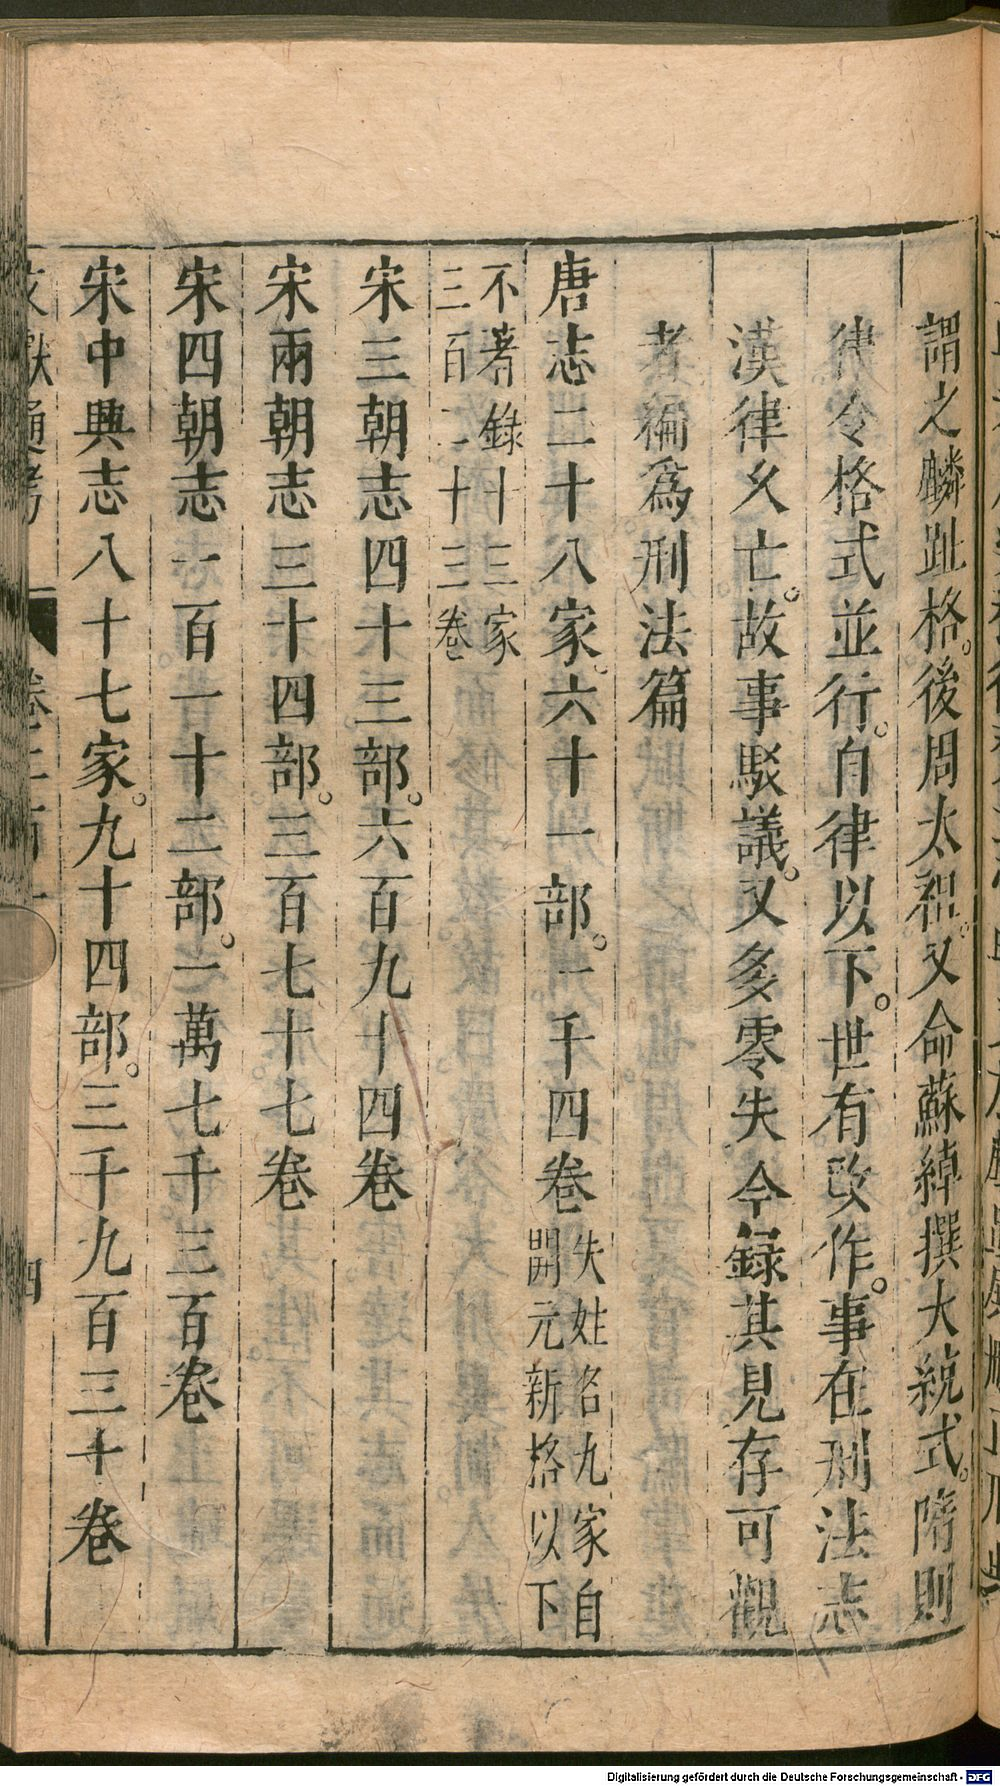 謂之麟趾格。後周太祖。又命蘇綽撰大統式。隋則
律令格式並行。自律以下。世有改作。事在刑法志
漢律久亡。故事駁議。又多零失今錄其見存可觀
者編爲刑法篇
唐志二十八家。六十一部。一千四卷失姓名九家自
開元新格以下
不著錄十三家
三百二十三卷
宋三朝志四十三部。六百九十四卷
宋兩朝志三十四部。三百七十七卷
宋四朝志一百一十二部。一萬七千三百卷
宋中興志八十七家。九十四部。三千九百三十卷
文獻通考 卷二百一 四
Digitalisierung gefördert durch die Deutsche Forschungsgemeinschaft - DFG